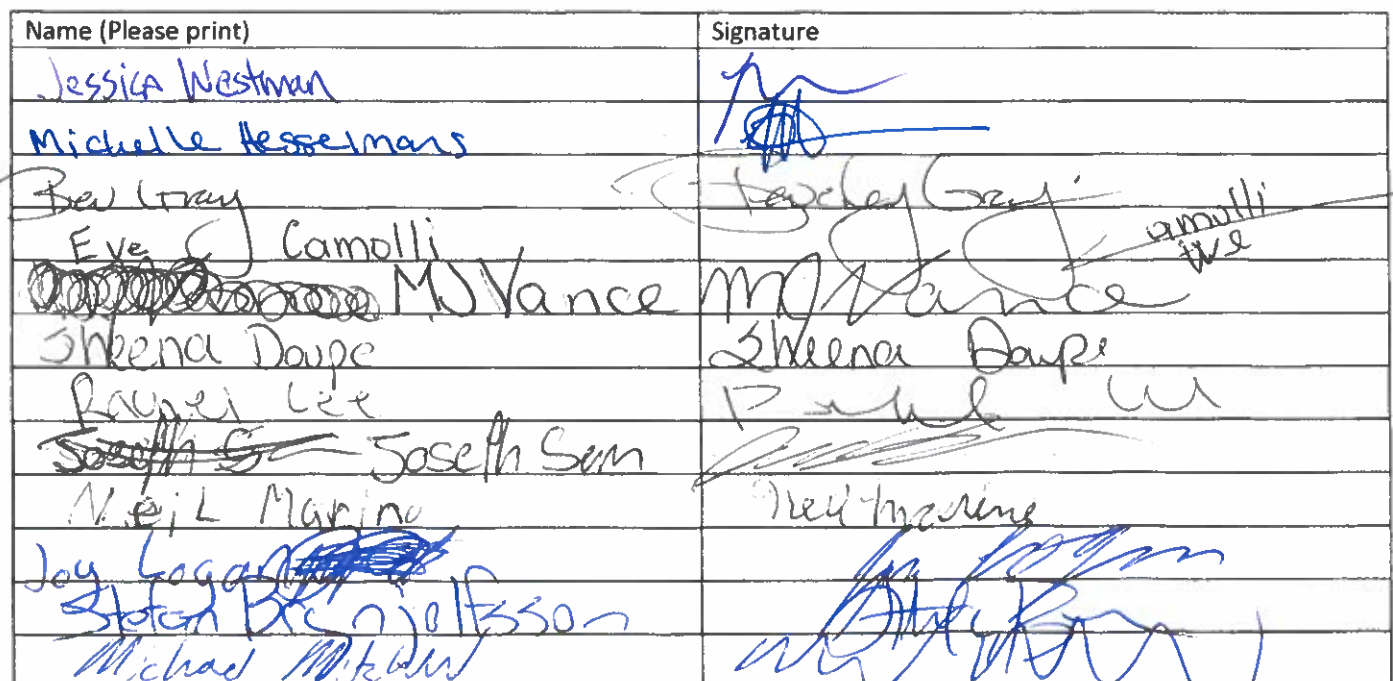 Name (Please print) Signature
Jessica Westman
Michelle Hesselmans
Bev Gray Beverley Gray
Eve Camolli amolli
Eve
MJ Vance MJ Vance
Sheena Doupe Sheena Doupe
Lee
Joseph Joseph Sem
Neil Marino Neil Marino
Joy Logan Joy Logan
Stefan Brynjolfsson
Michael Mitchell